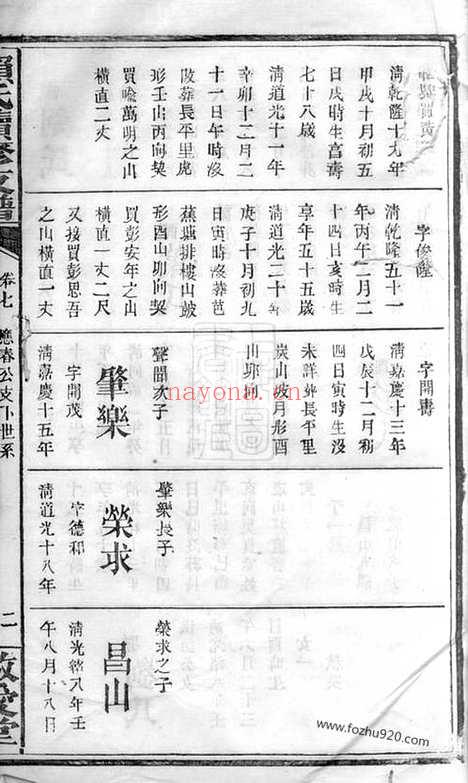 清乾隆十九年
甲戌十月初五
日戌時生享壽
七十八歲
清道光十一年
辛卯十二月二
十一日午時沒
改葬長平里虎
形壬山丙向契
買喻萬明之山
橫直二丈
字俊隆
清乾隆五十一
年丙午二月二
十四日亥時生
享年五十五歲
清道光二十年
庚子十月初九
日寅時沒葬芭
蕉塘排樓山坡
形酉山卯向契
買彭安年之山
橫直一丈二尺
又接買彭思吾
之山橫直一丈
字開壽
清嘉慶十三年
戊辰十二月初
四日寅時生沒
未詳葬長平里
炭山坡月形酉
山卯向
聲聞次子
肇樂
字開茂
清嘉慶十五年
肇樂長子
榮求
字德和
清道光十八年
榮求之子
昌山
清光緒八年壬
午八月十八日
卷七
應春公支下世系
二
敦受堂
nayona.cn
www.fozhu920.com